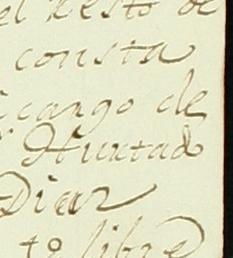 el Resto de
consta
cargo de
Hurtad
Diaz
to libre